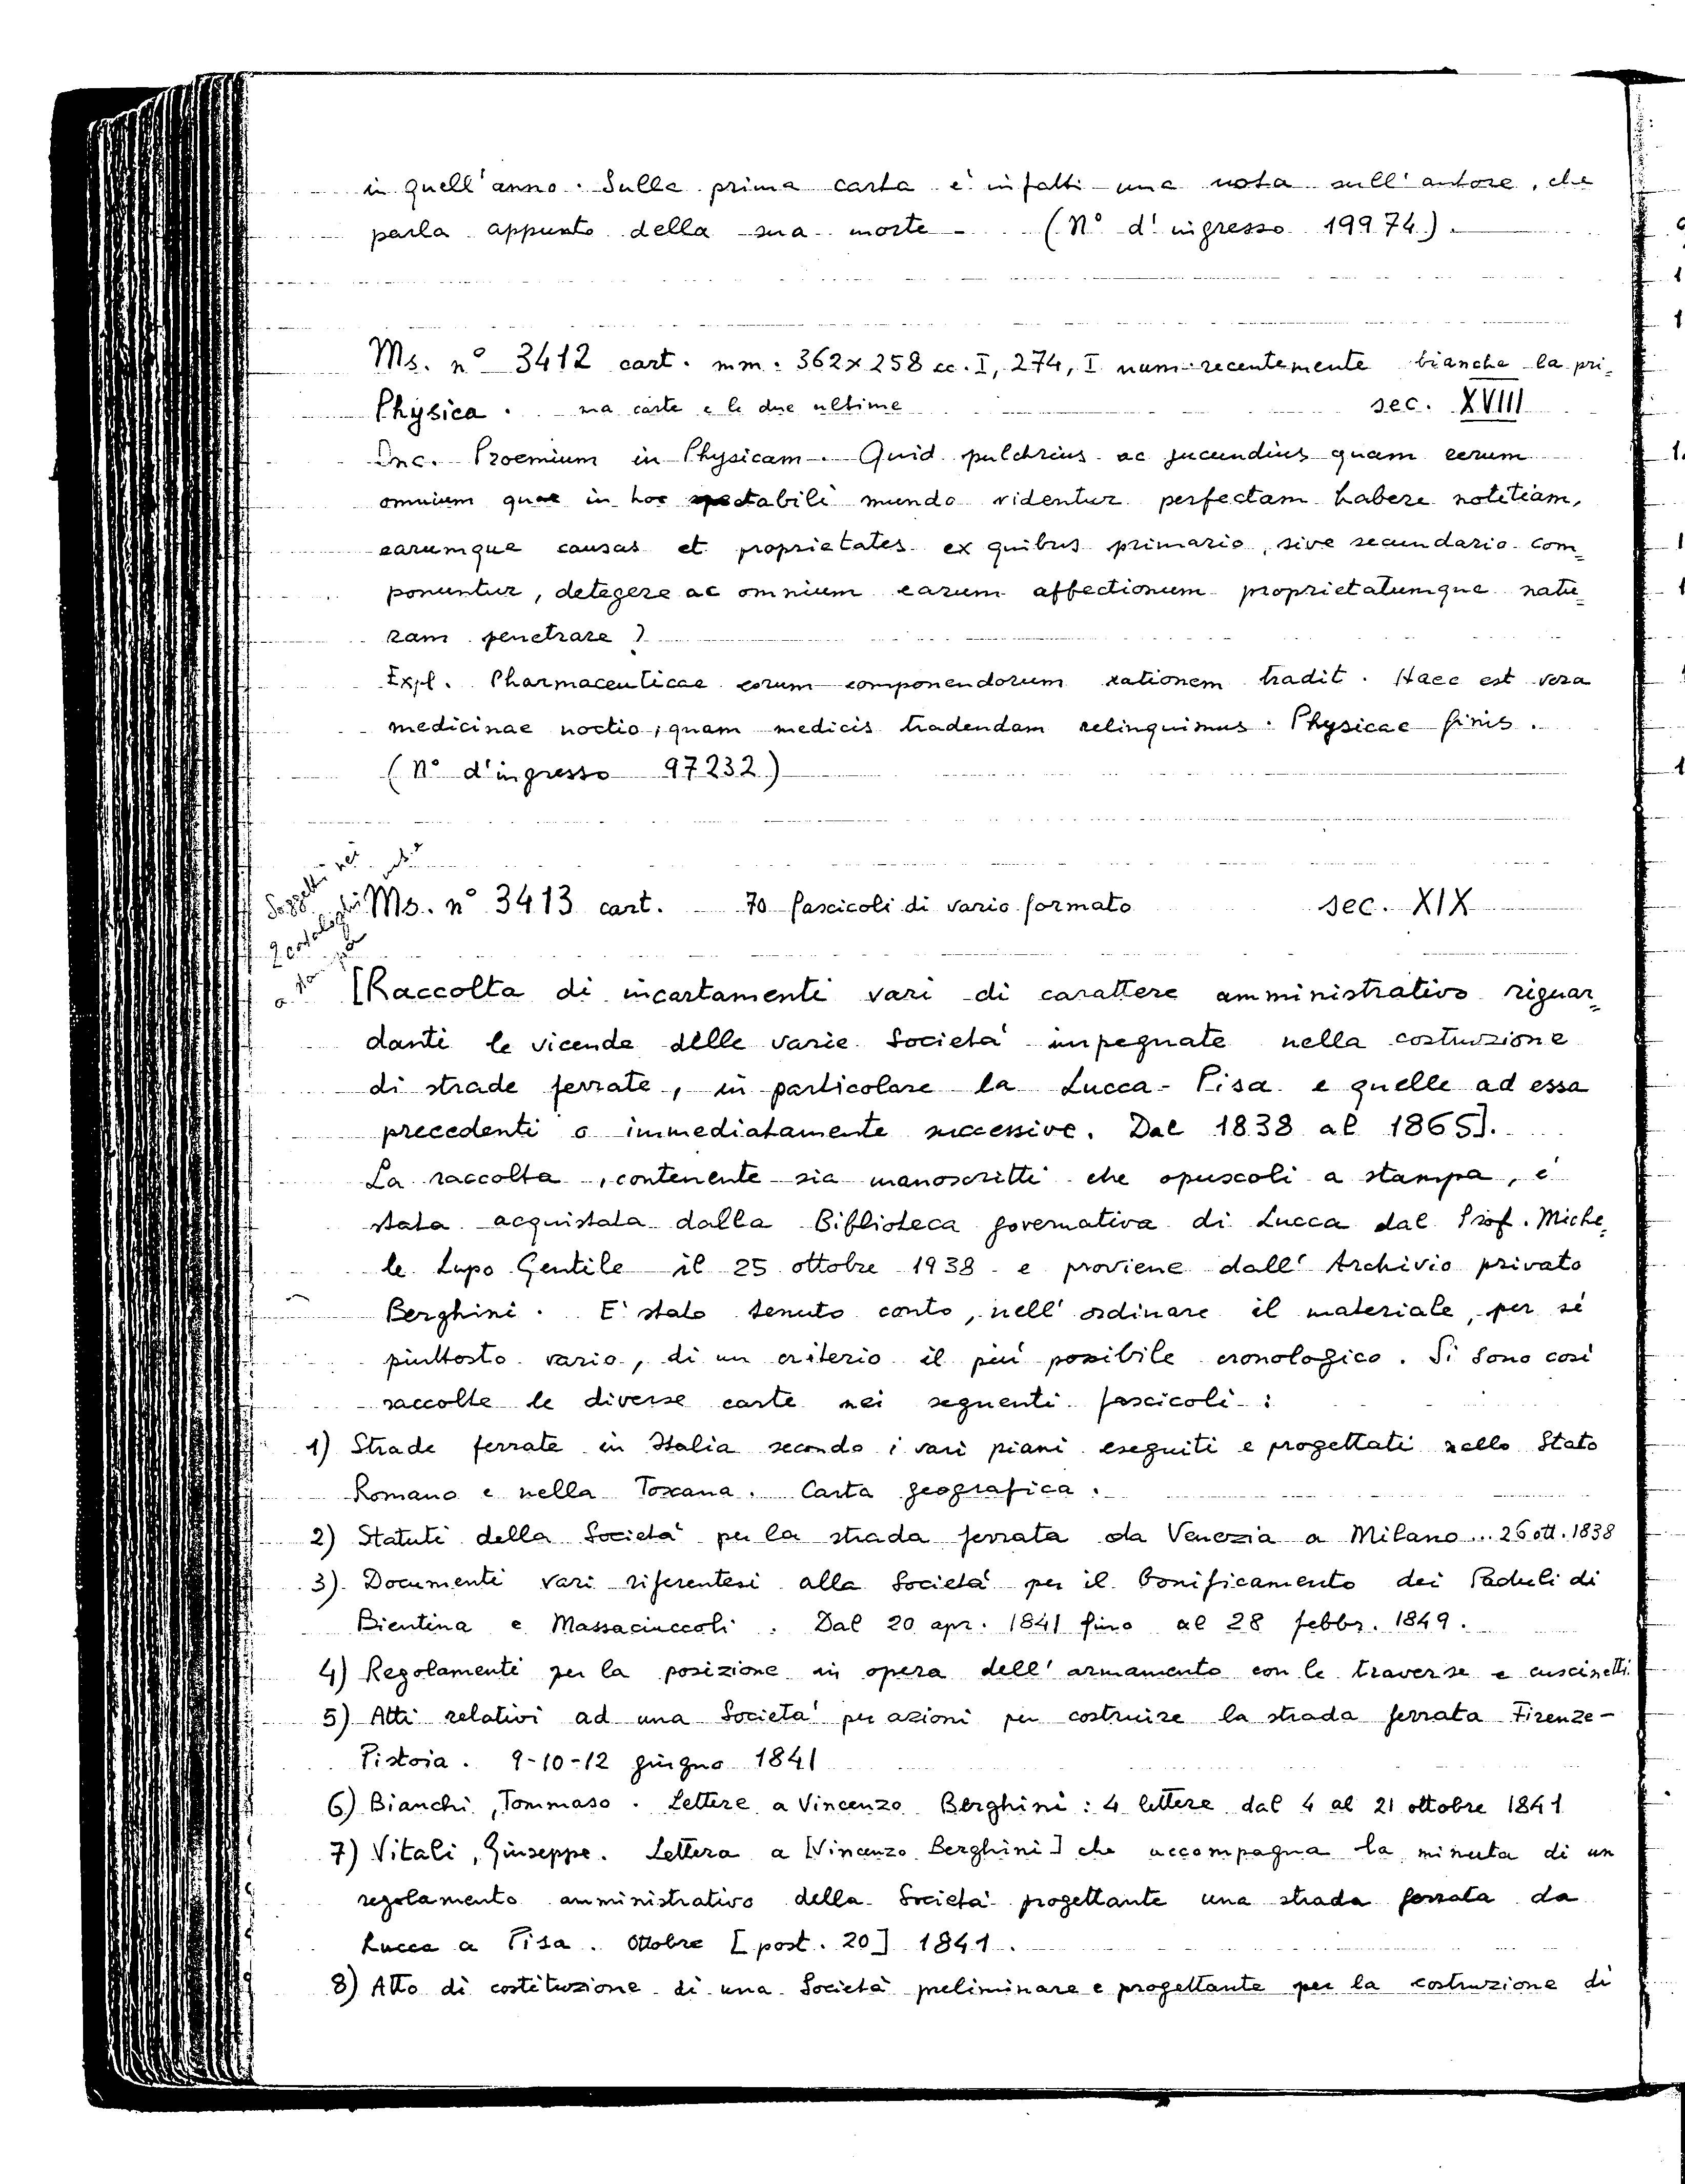 in quell'anno. Sulla prima carta è infatti una nota sull'autore, che
parla appunto della sua morte - (N° d'ingresso 19974).
Ms. n° 3412 cart. mm. 362x258 cc. I, 274, I num. recentemente bianche la pri=
Physica. ma carta e le due ultime sec. XVIII
Inc. Proemium in Physicam. Quid pulchrius ac jucundius quam eerum
omnium quae in hoc spectabili mundo videntur perfectam habere notitiam,
earumque causas et proprietates ex quibus primario, sive secundario com=
ponuntur, detegere ac omnium earum affectionum proprietatumque natu=
ram penetrare?
Expl. Pharmaceuticae eorum componendorum rationem tradit. Haec est vera
medicinae noctio, quam medicis tradendam relinquimus. Physicae finis.
(N° d'ingresso 97232)
Soggetti nei
2 cataloghi ms. e
a stampa
Ms. n° 3413 cart. 70 fascicoli di vario formato sec. XIX
[Raccolta di incartamenti vari di carattere amministrativo riguar=
danti le vicende delle varie Società impegnate nella costruzione
di strade ferrate, in particolare la Lucca-Pisa e quelle ad essa
precedenti o immediatamente successive. Dal 1838 al 1865].
La raccolta, contenente sia manoscritti che opuscoli a stampa, è
stata acquistata dalla Biblioteca governativa di Lucca dal Prof. Miche=
le Lupo Gentile il 25 ottobre 1938 e proviene dall'Archivio privato
Berghini. E' stato tenuto conto, nell'ordinare il materiale, per sé
piuttosto vario, di un criterio il più possibile cronologico. Si sono così
raccolte le diverse carte nei seguenti fascicoli:
1) Strade ferrate in Italia secondo i vari piani eseguiti e progettati nello Stato
Romano e nella Toscana. Carta geografica.
2) Statuti della Società per la strada ferrata da Venezia a Milano... 26 ott. 1838
3) Documenti vari riferentesi alla Società per il bonificamento dei Paduli di
Bientina e Massaciuccoli. Dal 20 apr. 1841 fino al 28 febbr. 1849.
4) Regolamenti per la posizione in opera dell'armamento con le traverse e cuscinetti
5) Atti relativi ad una Società per azioni per costruire la strada ferrata Firenze-
Pistoia. 9-10-12 giugno 1841
6) Bianchi, Tommaso. Lettere a Vincenzo Berghini: 4 lettere dal 4 al 21 ottobre 1841
7) Vitali, Giuseppe. Lettera a [Vincenzo Berghini] che accompagna la minuta di un
regolamento amministrativo della Società progettante una strada ferrata da
Lucca a Pisa. Ottobre [post. 20] 1841.
8) Atto di costituzione di una Società preliminare e progettante per la costruzione di